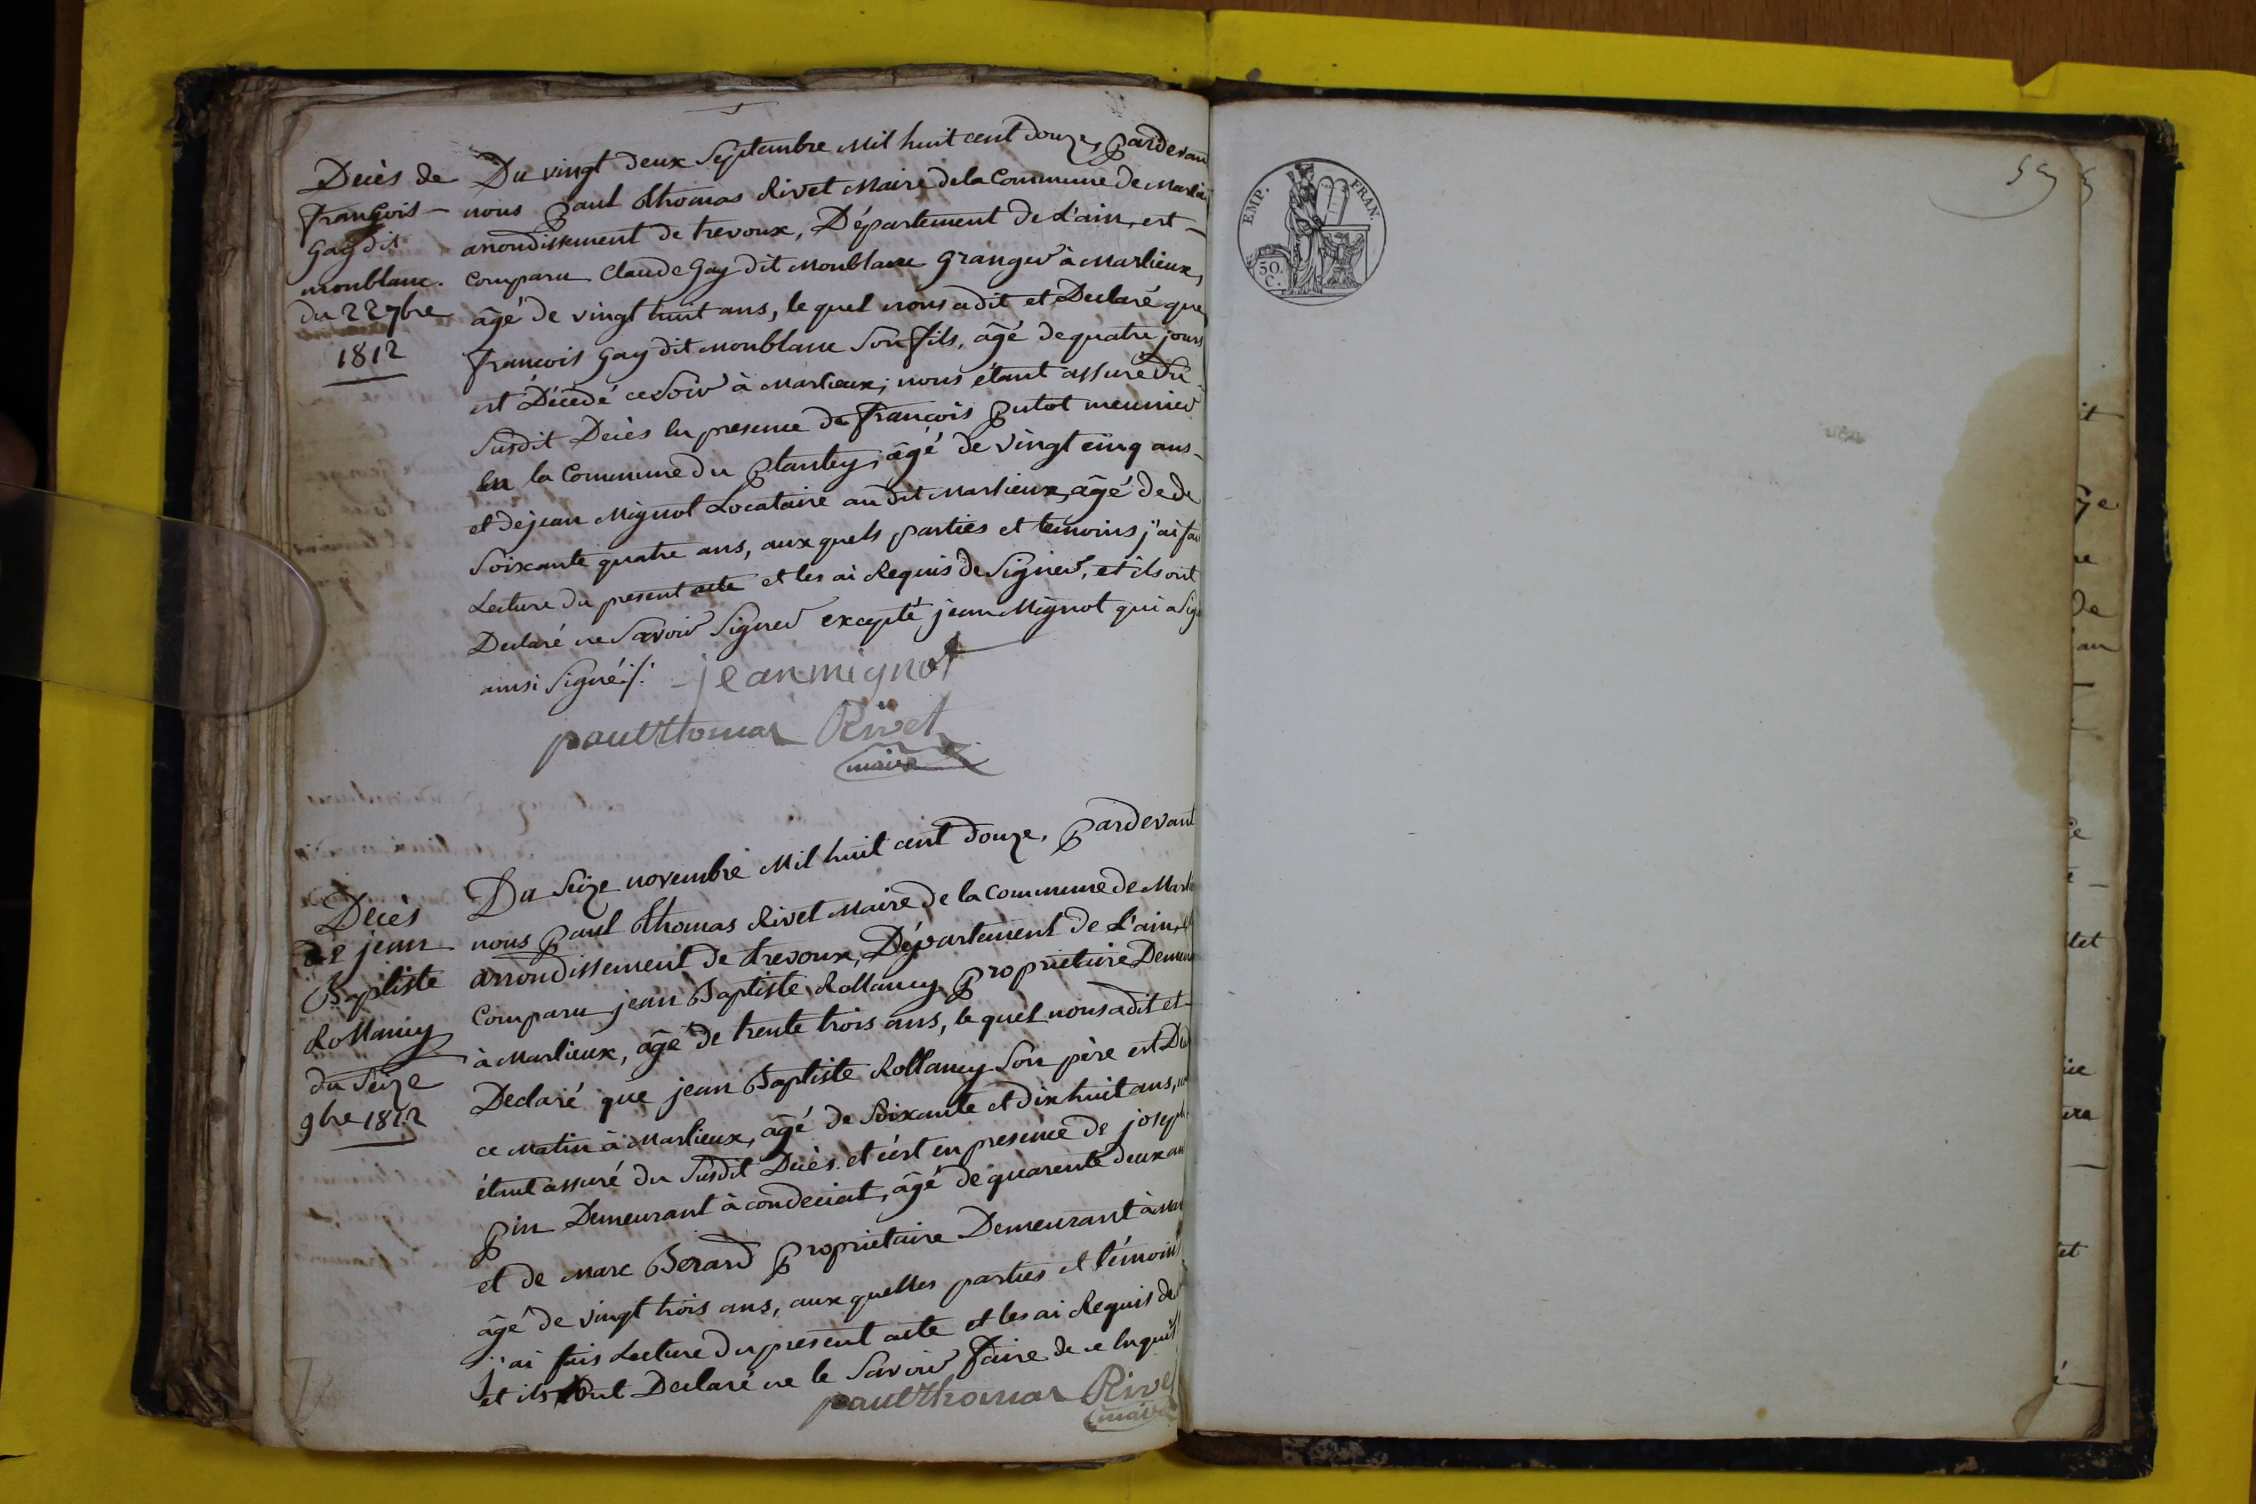 Decès de
françois
Gay dit
monblanc.
du 22 7bre
1812
Du vingt deux Septembre Mil huit cent douze, pardevan
nous paul thomas Rivet Maire de la Commune de Marlieu
arrondissement de trevoux, Département de L'ain, est
comparu Claude Gay dit Monblanc Granger à Marlieux,
âgé de vingt huit ans, le quel nous a dit et Declaré que
françois Gay dit monblanc Son fils, âgé de quatre jours
est Décédé ce Soir à Marlieux; nous étant assuré du
Susdit Decès en presence de françois putot meunier
en la Commune du plantey, âgé de vingt cinq ans
et de jean Mignot Locataire au dit Marlieux, âgé de de
Soixante quatre ans, aux quels parties et temoins j'ai fai
Lecture du present acte et les ai Requis de Signer, et ils ont
Declaré ne Savoir Signer excepté jean Mignot qui a Sig
ainsi Signé ./.
jean mignot
paul thomas Rivet
maire
Decès
de jean
Baptiste
Rollancy
du Seize
9bre 1812
Du Seize novembre Mil huit cent douze, pardevant
nous paul thomas Rivet Maire de la Commune de Marli
arrondissement de trevoux, Département de L'ain,
Comparu jean Baptiste Rollancy proprietaire Demeu
à Marlieux, âgé de trente trois ans, le quel nous a dit et
Declaré que jean Baptiste Rollancy Son père est Dé
ce Matin à Marlieux, âgé de Soixante et dix huit ans,
étant assuré du Susdit Decès. et c'est en presence de joseph
pin Demeurant à condeciat, âgé de quarente deux an
et de Marc Berard proprietaire Demeurant à Mar
âgé de vingt trois ans, aux quelles parties et témoins
j'ai fais Lecture du present acte et les ai Requis de
et ils ont Declaré ne le Savoir faire de ce Enquis
paul thomas Rive
maire
EMP. FRAN.
50.
C.
55